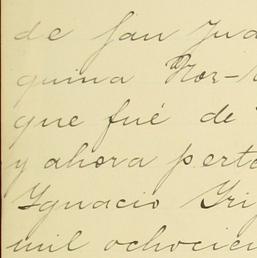 de San Jua
quina Nor-
que fué de
y ahora perte
Ygnacio Gri
mil ochocien